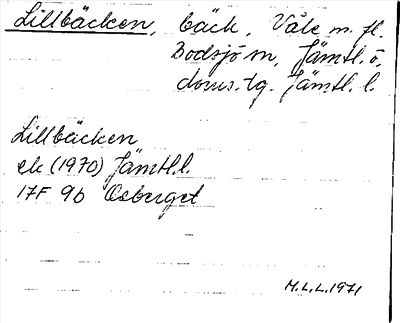 Lillbäcken, bäck, Våle m. fl.
Bodsjö sn, Jämtl. ö.
doms. tg. Jämtl. l.
Lillbäcken
ek (1970) Jämtl.l.
17F 9b Åsberget
M.L.L. 1971